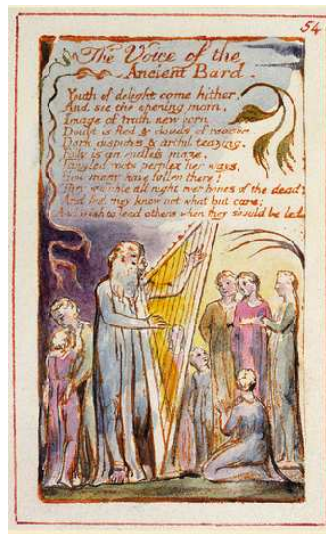 54
The Voice of the
Ancient Bard.
Youth of delight come hither,
And see the opening morn,
Image of truth new born
Doubt is fled & clouds of reason
Dark disputes & artful teazing.
Folly is an endless maze,
Tangled roots perplex her ways,
How many have fallen there!
They stumble all night over bones of the dead;
And feel they know not what but care;
And wish to lead others when they should be led